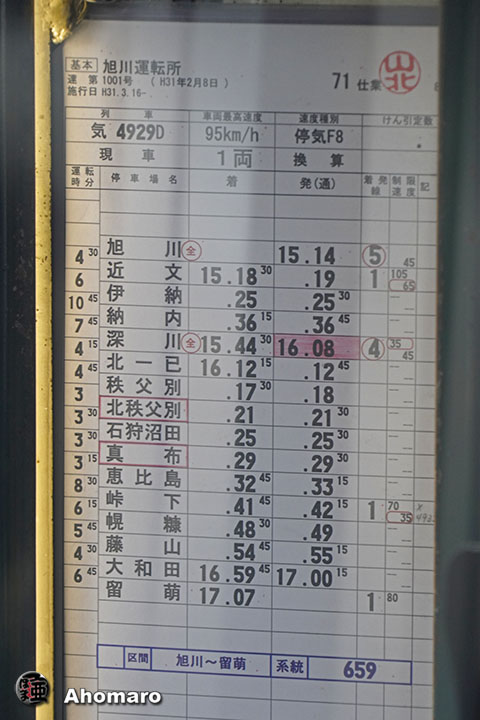 基本 旭川運転所
運 第 1001号 (H31年2月8日) 71 仕業 山北
施行日 H31.3.16-
列車 車両最高速度 速度種別 けん引定数
気 4929D 95km/h 停気F8
現車 1両 換算
運転時分 停車場名 着 発(通) 着発線 制限速度 記
旭川 全 15.14 5 45
4 30
近文 15.18 30 .19 1 105 65
6
伊納 .25 .25 30
10 45
納内 .36 15 .36 45
7 45
深川 全 15.44 30 16.08 4 35 45
4 15
北一已 16.12 15 .12 45
4 45
秩父別 .17 30 .18
3
北秩父別 .21 .21 30
3 30
石狩沼田 .25 .25 30
3 30
真布 .29 .29 30
3 15
恵比島 .32 45 .33 15
8 30
峠下 .41 45 .42 15 1 70 35
6 15
幌糠 .48 30 .49
5 45
藤山 .54 45 .55 15
4 30
大和田 16.59 45 17.00 15
6 45
留萌 17.07 1 80
区間 旭川〜留萌 系統 659
Ahomaro